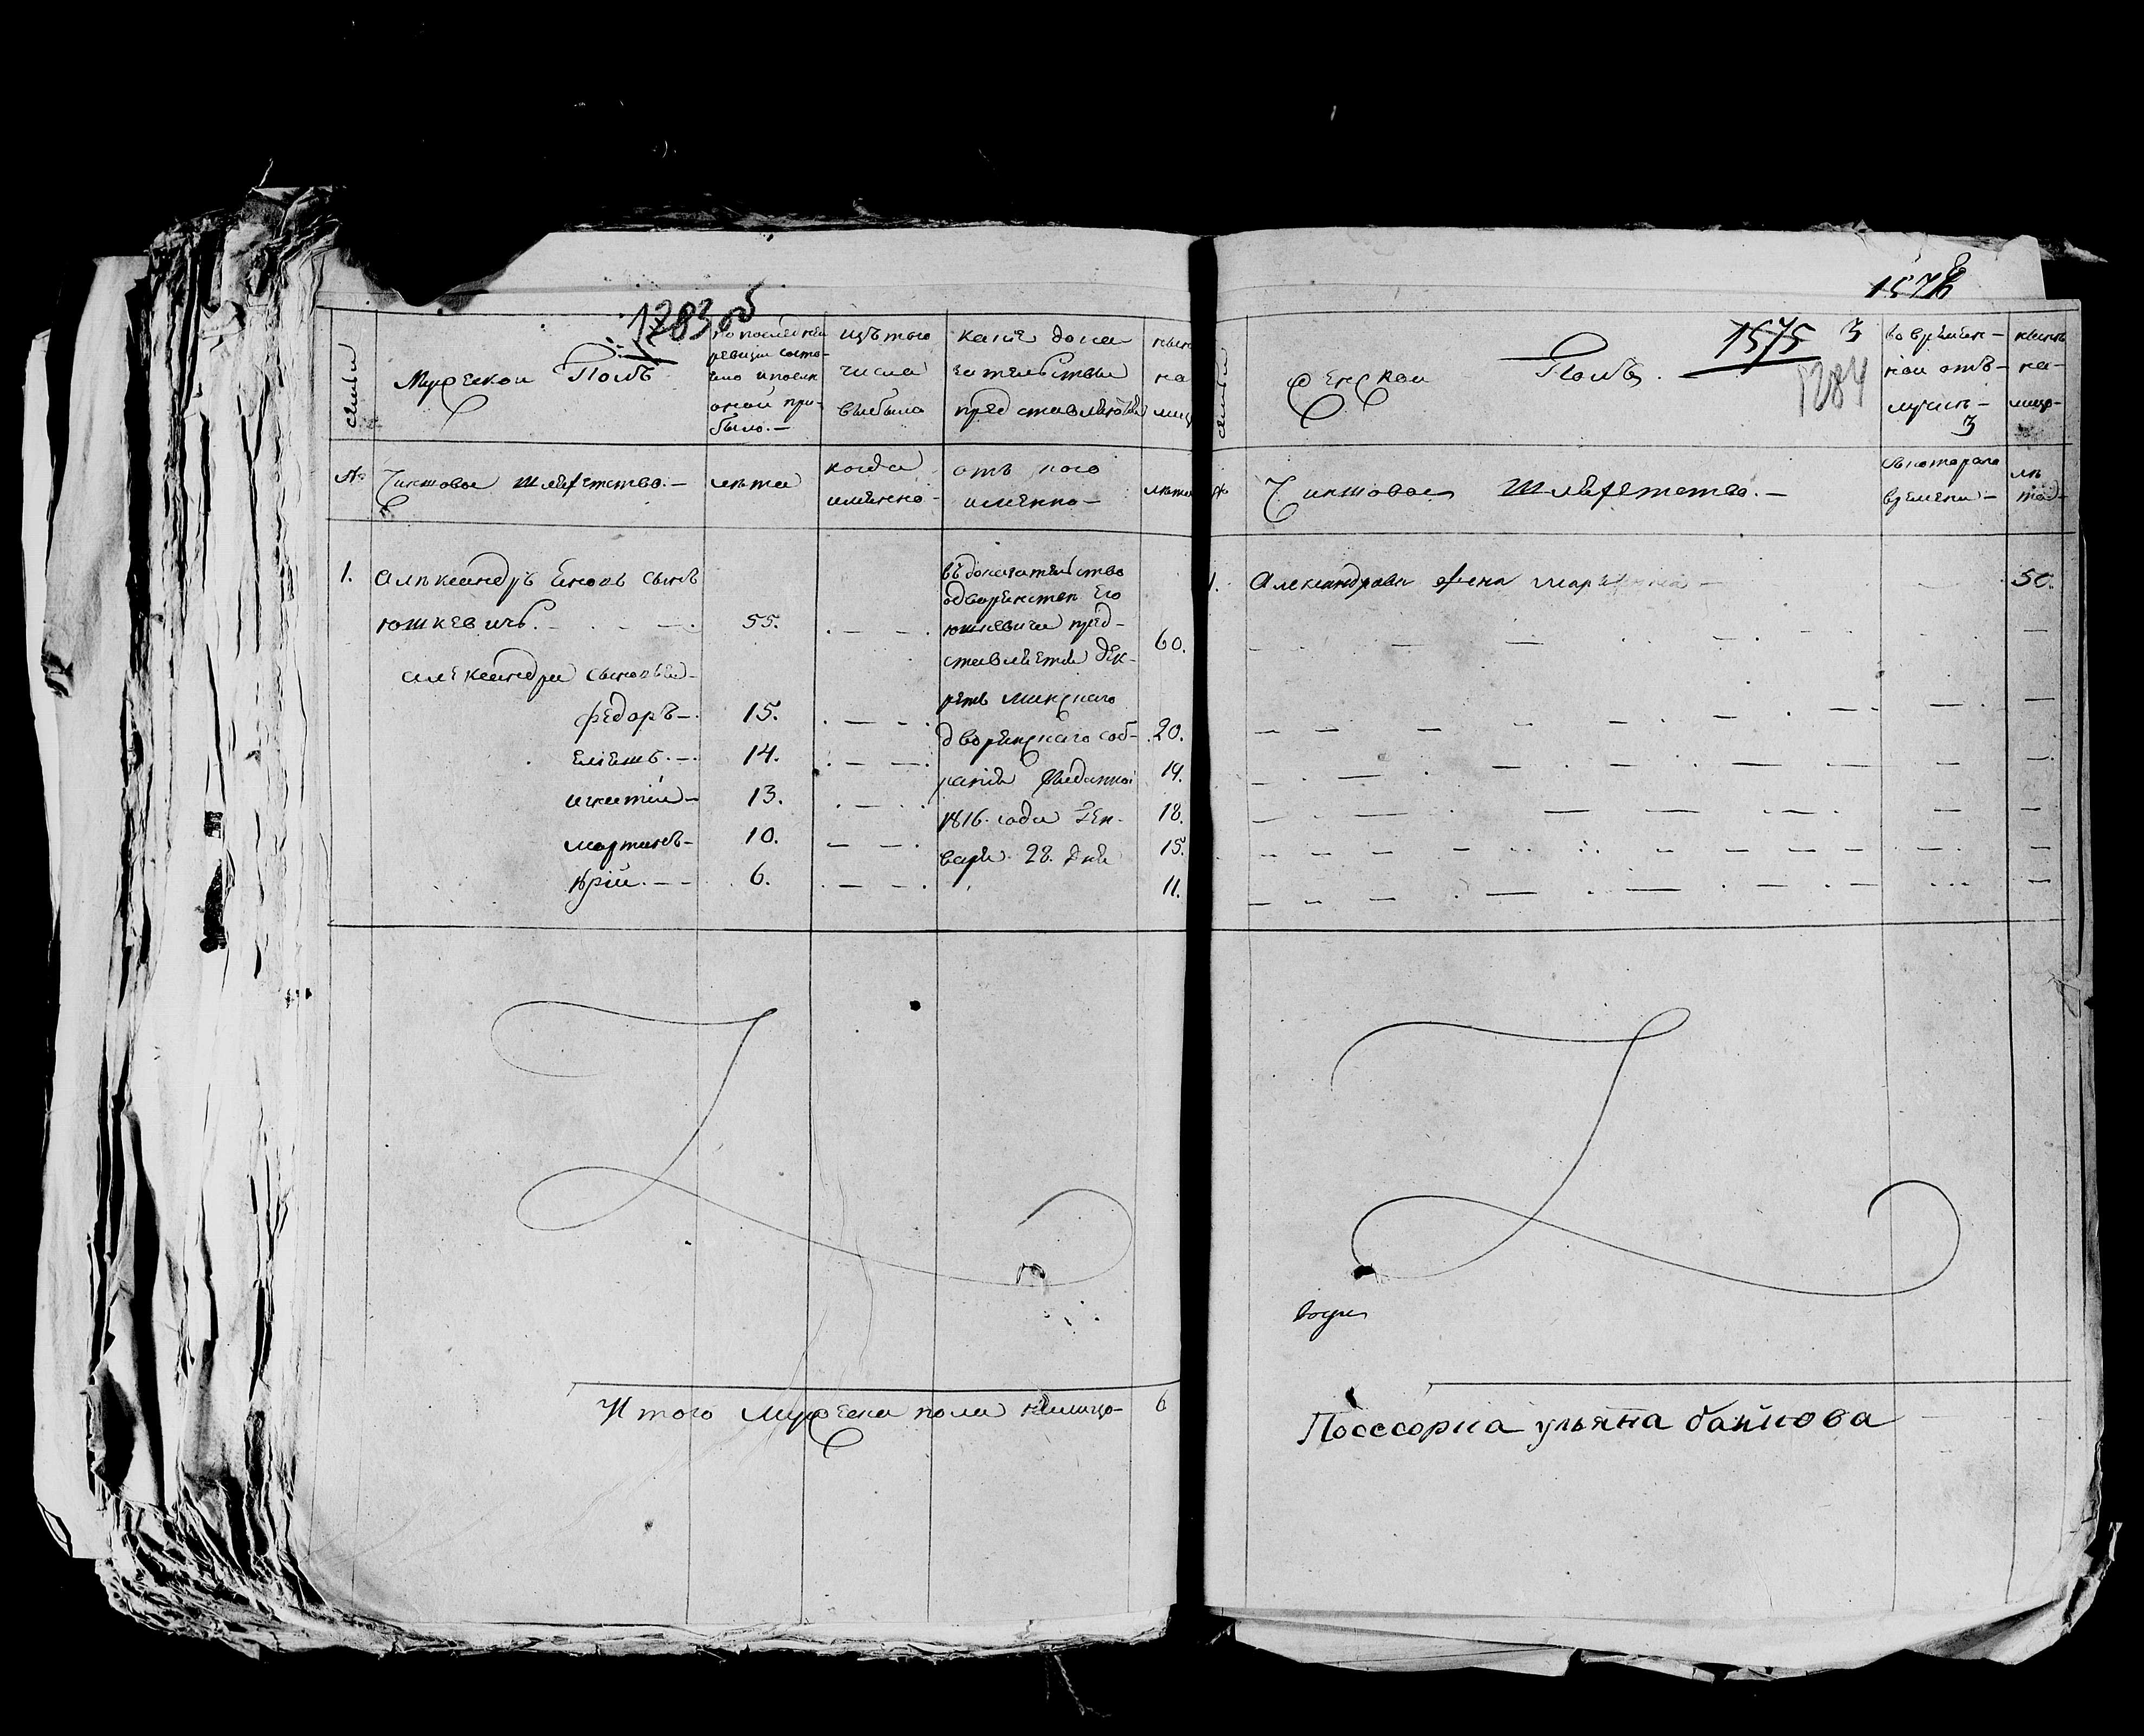 1283 об
семьи
Мужескои Полъ
по последней
ревизіи состо-
яло и после
оной при-
было. —
изъ того
числа
выбыло
какіе дока
зательства
представлены
ныне
на
лицо
№
Чиншовое шляхетство. —
лета
когда
именно -
отъ кого
именно —
лета
1.
Александръ сынъ
юшкевичь. - . - — .
55.
въ доказательство
о дворянстве его
юшкевича пред-
ставляется дек-
ретъ минскаго
дворянскаго соб-
ранія выданной
1816. года Ген-
варя 28. дня
60.
александра сыновья -
федоръ —.
15.
20.
14.
19.
игнатій —
13.
18.
мартинъ —
10.
15.
Юрій. — -
6.
11.
Итого мужеска пола налицо -
6
1576
1575 3
1284
семьи
женскои Полъ.
во времен —
ной отъ —
лучке —
3
ныне
на-
лицо-
№
Чиншовое Шляхетство. —
съ котораго
времени —
ле
та
1.
Александрова жена
50.
Поссесорка ульяна